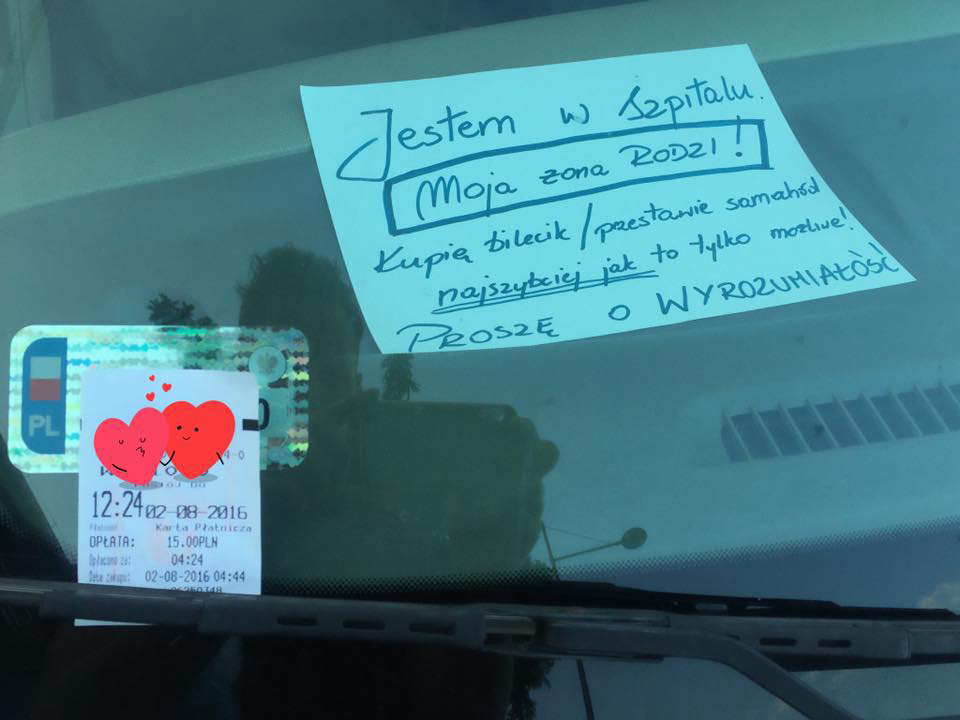 Jestem w Szpitalu.
Moja żona RODZI!
Kupię bilecik/przestawie samohód
najszybciej jak to tylko możliwe!
PROSZĘ o WYROZUMIAŁOŚĆ
PL
12:24 02-08-2016
Karta Płatnicza
OPŁATA: 15.00PLN
Opłacono za: 04:24
Data zakupu: 02-08-2016 04:44